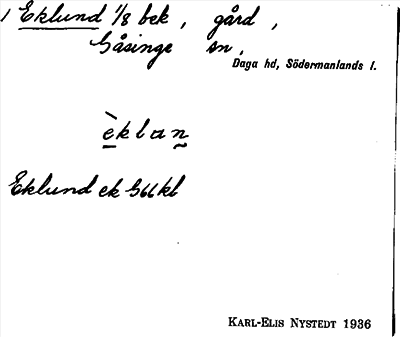 1 Eklund 1/8 bek, gård,
Gåsinge sn,
Daga hd, Södermanlands l.
èklan
Eklund ek G66 kl
KARL-ELIS NYSTEDT 1936